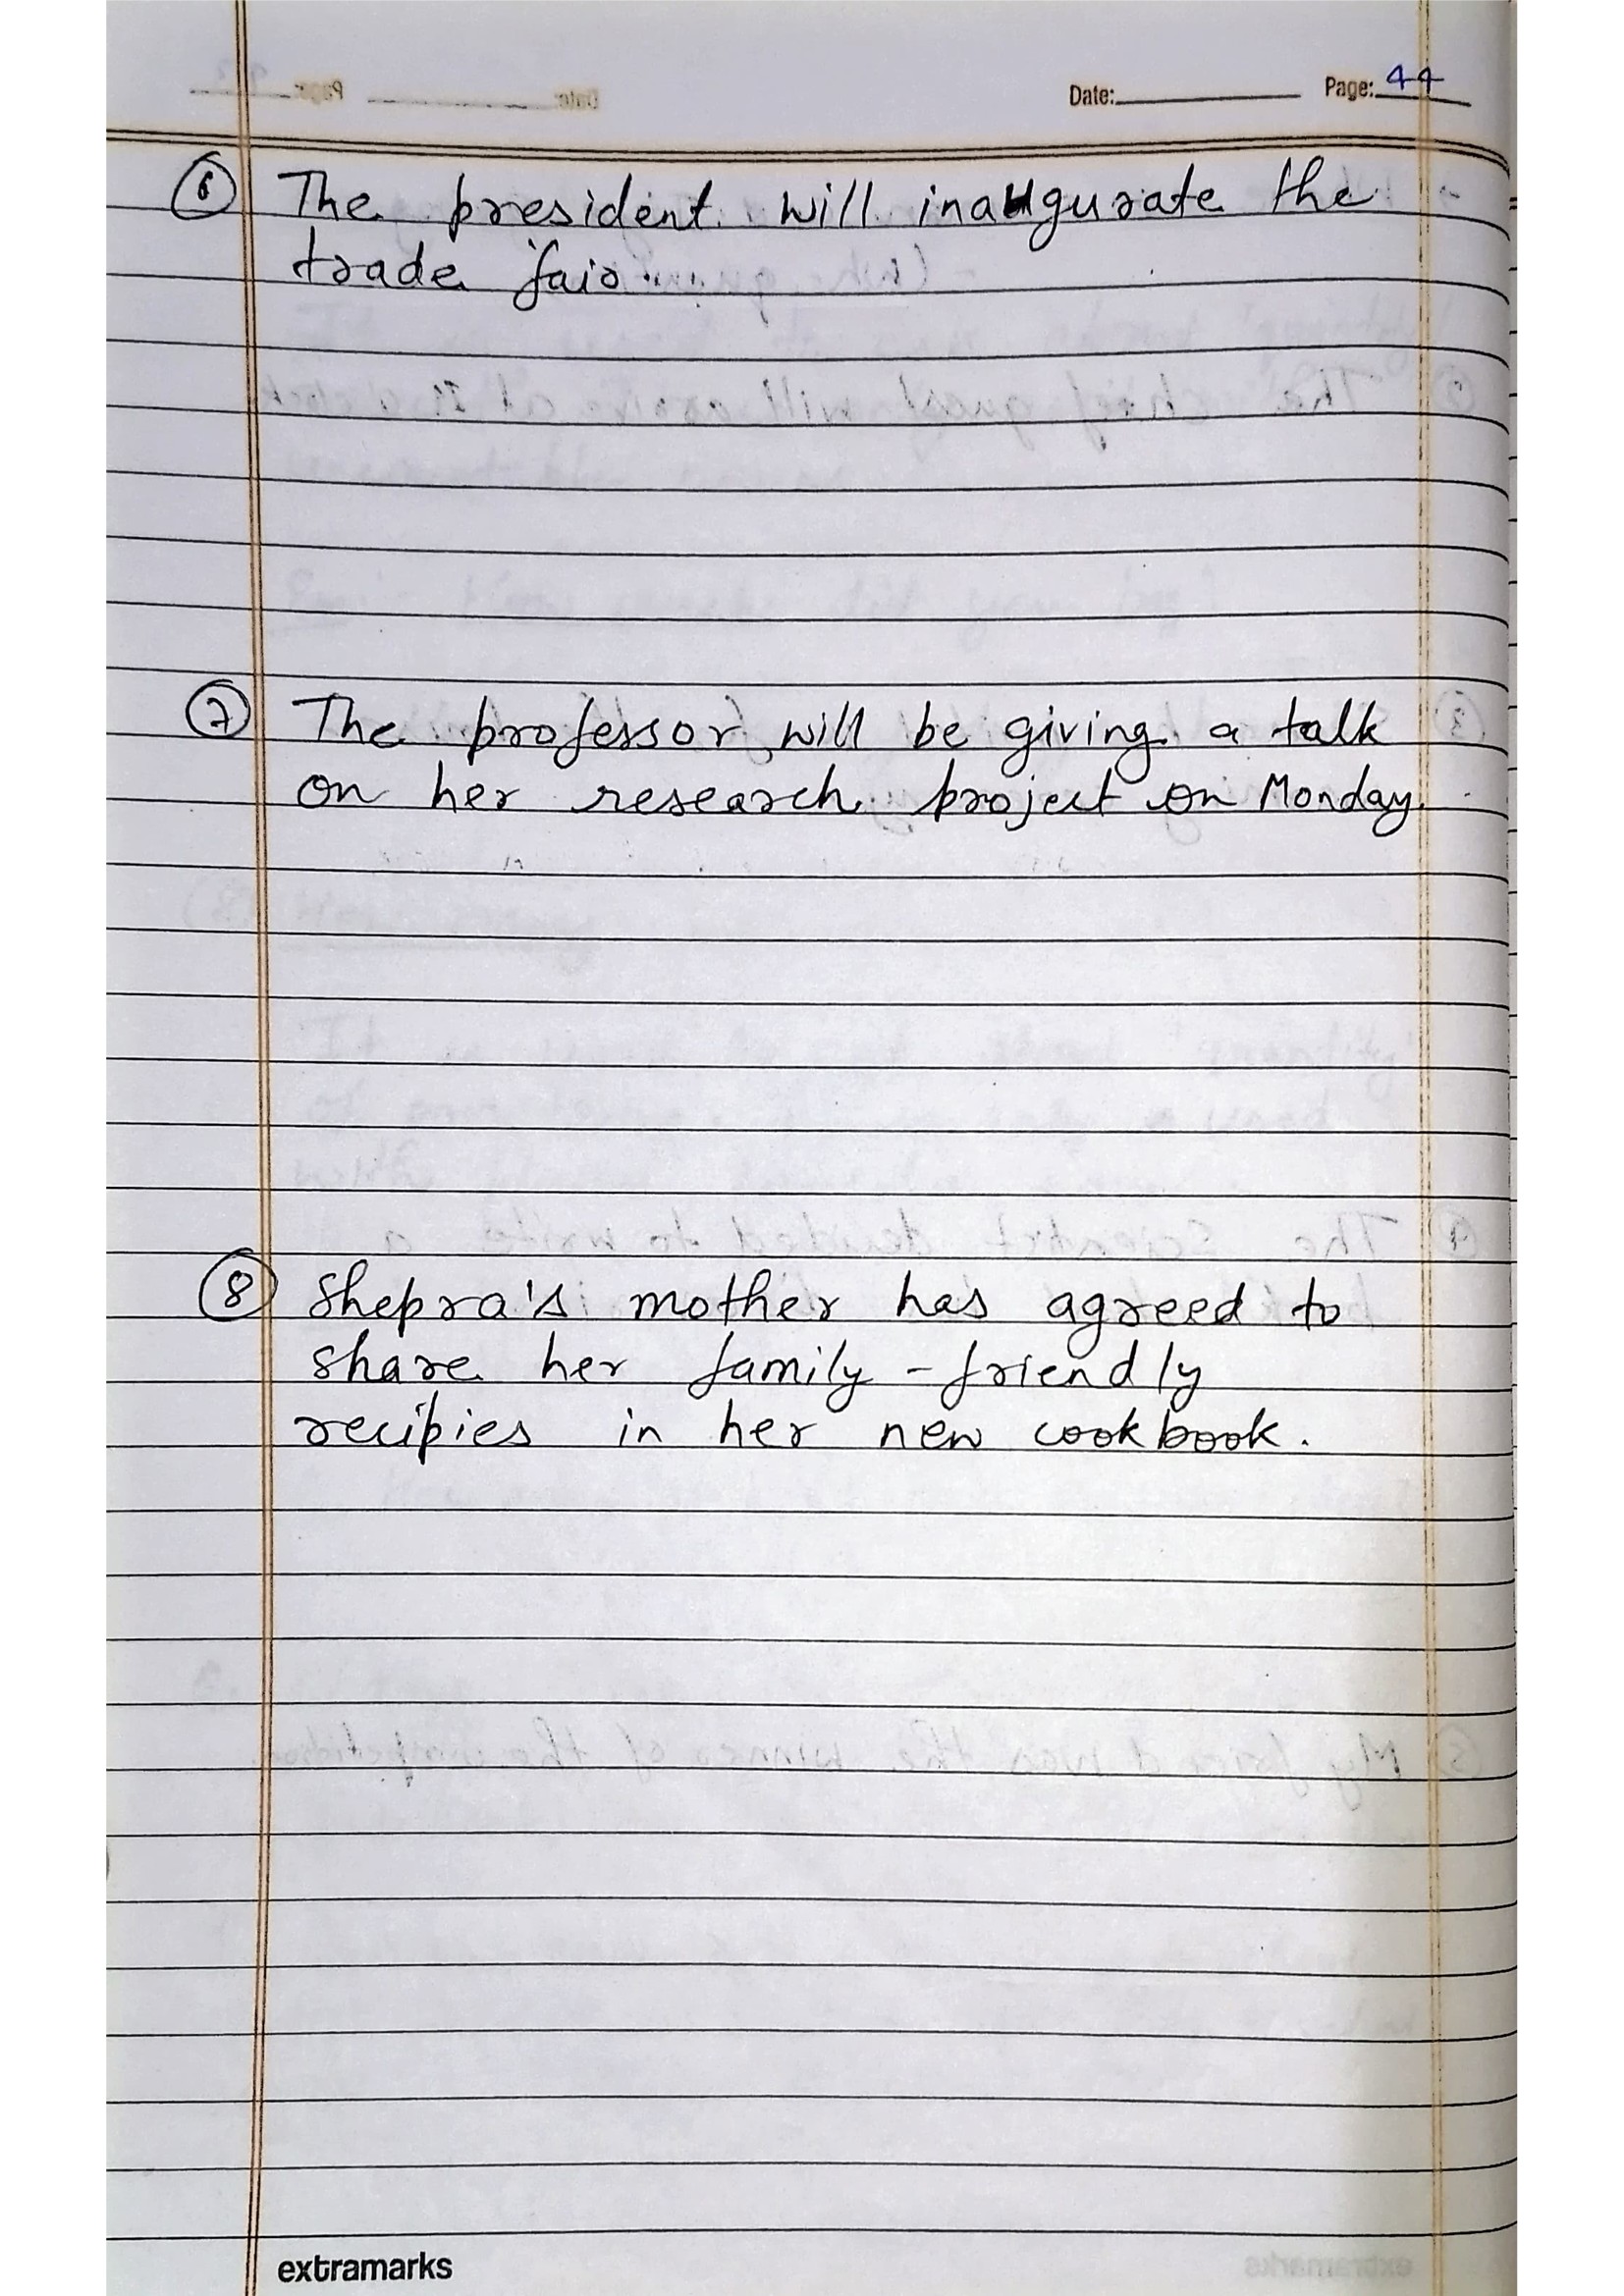 Date: Page: 44
⑥ The president will inaugurate the
trade fair.
⑦ The professor will be giving a talk
on her research project on Monday.
⑧ Shepra's mother has agreed to
share her family-friendly
recipies in her new cookbook.
extramarks